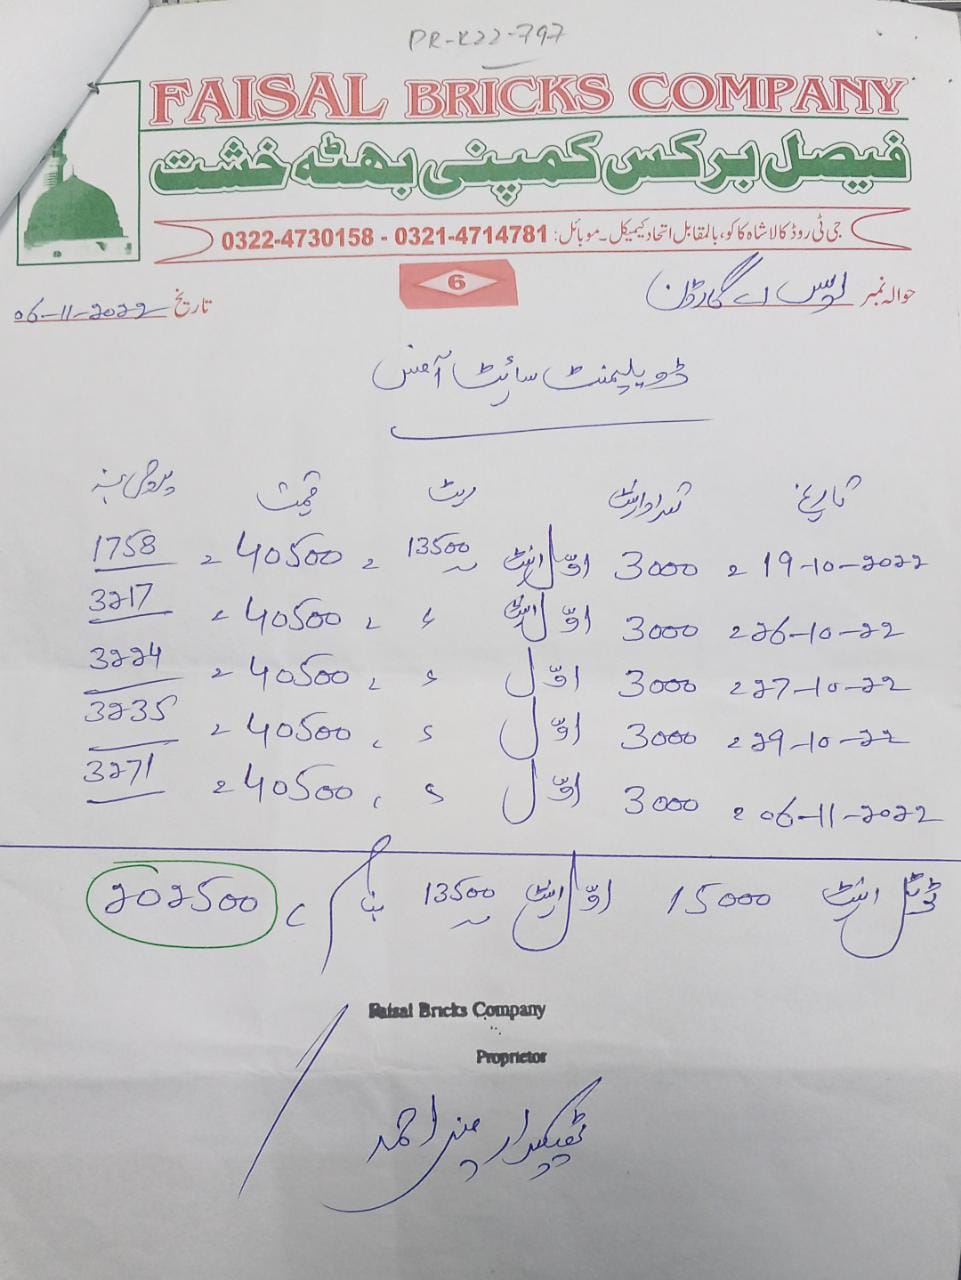 PR-K22-797
FAISAL BRICKS COMPANY
فیصل برکس کمپنی بھٹہ خشت
جی ٹی روڈ کالا شاہ کاکو، بالمقابل اتحاد کیمیکل۔ موبائل: 0321-4714781 - 0322-4730158
6
حوالہ نمبر ایس اے گارڈن تاریخ 06-11-2022
ڈویلپمنٹ سائیٹ آفس
تاریخ تعداد اینٹ ریٹ قیمت
19-10-2022 = 3000 اوّل اینٹ 13500 = 40500 = 1758
26-10-22 = 3000 اوّل اینٹ " = 40500 = 3217
27-10-22 = 3000 اوّل " = 40500 = 3224
29-10-22 = 3000 اوّل " = 40500 = 3235
06-11-2022 = 3000 اوّل " = 40500 = 3271
ٹوٹل اینٹ 15000 اوّل اینٹ 13500 202500
Faisal Bricks Company
Proprietor
ٹھیکیدار احمد